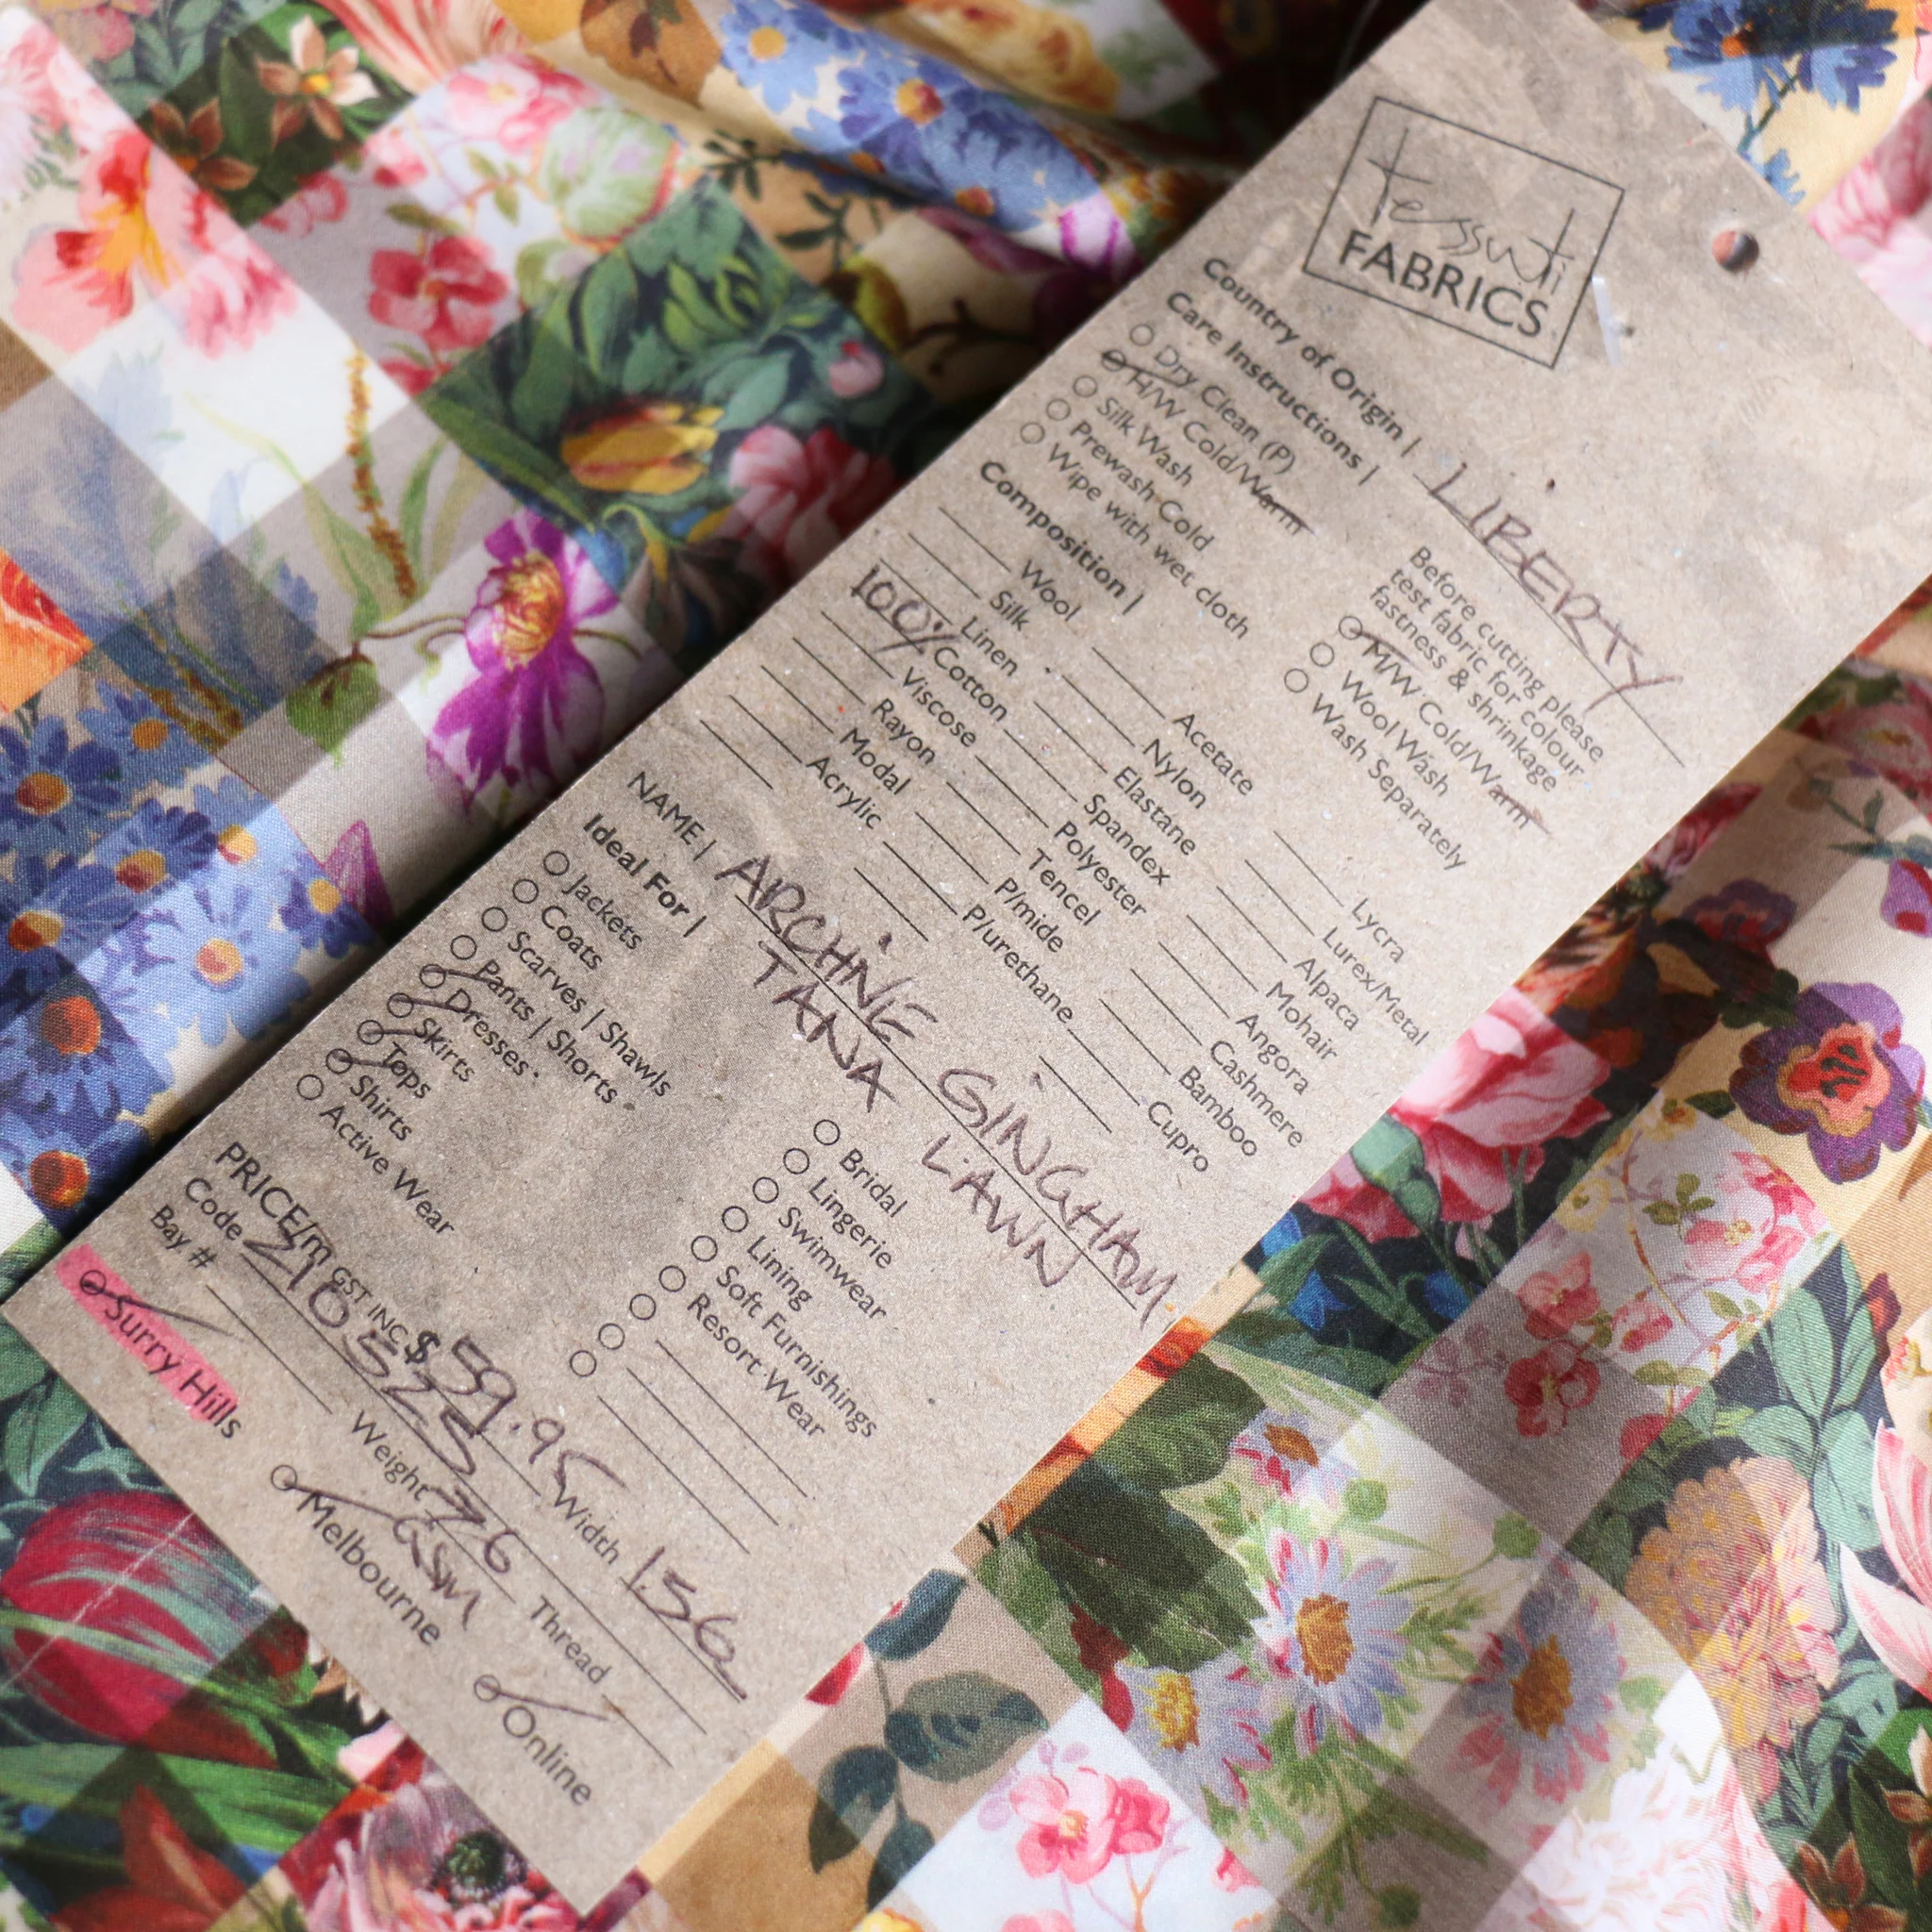 tessuti
FABRICS
Country of Origin | LIBERTY
Care Instructions |
Dry Clean (P)
H/W Cold/Warm
Silk Wash
Prewash Cold
Wipe with wet cloth
Before cutting please
test fabric for colour
fastness & shrinkage
M/W Cold/Warm
Wool Wash
Wash Separately
Composition |
Wool
Silk
Linen
100% Cotton
Viscose
Rayon
Modal
Acrylic
Acetate
Nylon
Elastane
Spandex
Polyester
Tencel
P/mide
P/urethane
Lycra
Lurex/Metal
Alpaca
Mohair
Angora
Cashmere
Bamboo
Cupro
NAME | ARCHIVE GINGHAM
TANA LAWN
Ideal For |
Jackets
Coats
Scarves | Shawls
Pants | Shorts
Dresses
Skirts
Tops
Shirts
Active Wear
Bridal
Lingerie
Swimwear
Lining
Soft Furnishings
Resort Wear
PRICE/m GST INC $ 59.95 Width 1.36
Code 210525 Thread
Bay # Weight 76 gsm
Surry Hills
Melbourne
Online